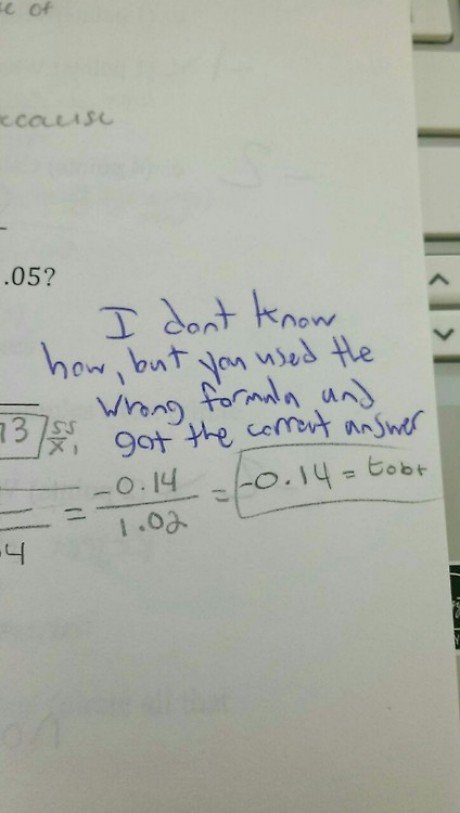 .05?
I dont know
how, but you used the
wrong formula and
got the correct answer
= -0.14 / 1.02 = -0.14 = tobt